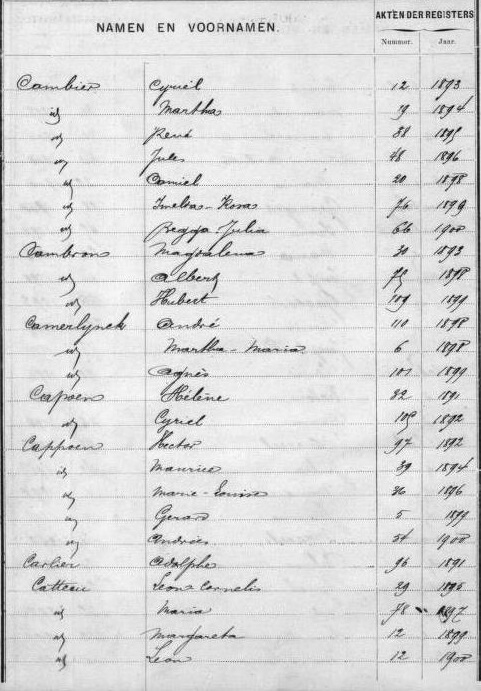 NAMEN EN VOORNAMEN. AKTEN DER REGISTERS
Nummer. Jaar.
Cambier Cyriël 12 1893
id Martha 19 1894
id René 38 1895
id Jules 48 1896
id Camiel 20 1898
id Imelda-Rosa 76 1899
id Begga Julia 66 1900
Cambron Magdalena 30 1893
id Albert 75 1898
id Hubert 109 1899
Camerlynck André 110 1898
id Martha-Maria 6 1898
id Agnès 101 1899
Capoen Hélène 32 1891
id Cyriel 105 1892
Cappoen Hector 97 1892
id Maurice 39 1894
id Marie-Louise 36 1896
id Gerard 5 1899
id Andries 54 1900
Carlier Adolphe 96 1891
Catteau Leon Cornelis 29 1895
id Maria 78 1897
id Margareta 12 1899
id Leon 12 1900